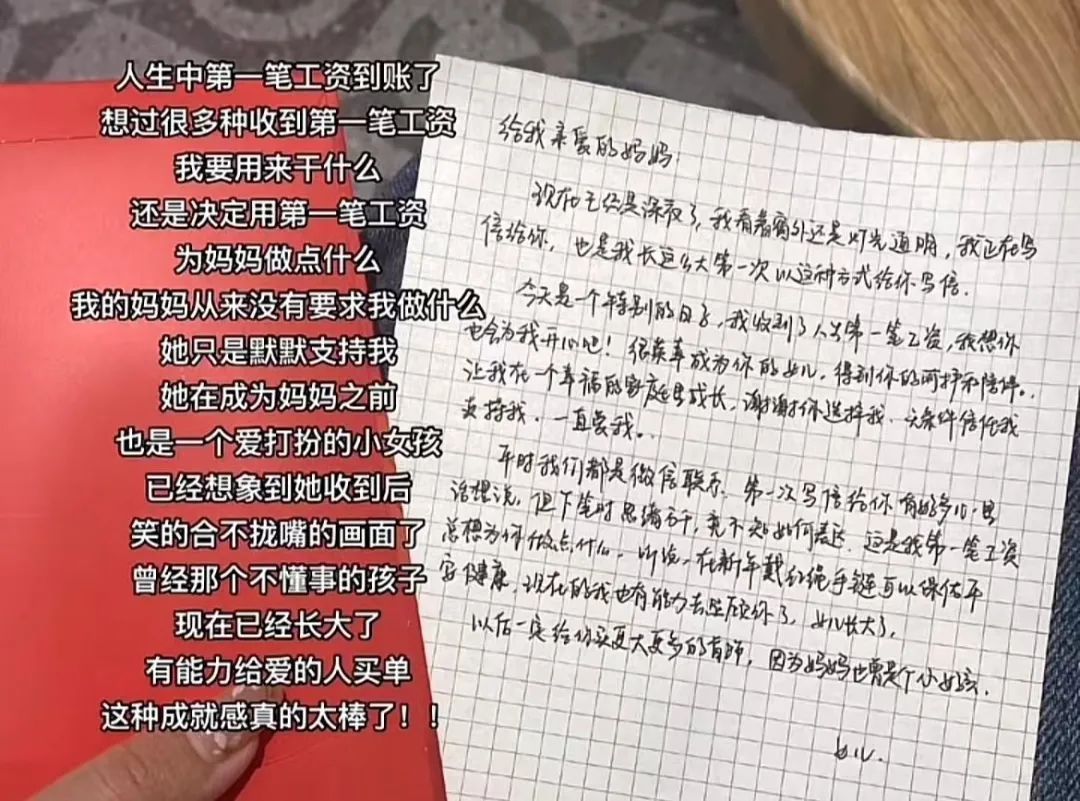 人生中第一笔工资到账了
想过很多种收到第一笔工资
我要用来干什么
还是决定用第一笔工资
为妈妈做点什么
我的妈妈从来没有要求我做什么
她只是默默支持我
她在成为妈妈之前
也是一个爱打扮的小女孩
已经想象到她收到后
笑的合不拢嘴的画面了
曾经那个不懂事的孩子
现在已经长大了
有能力给爱的人买单
这种成就感真的太棒了！！
给我亲爱的妈妈：
现在已经是深夜了，我看着窗外还是灯光通明，我正在写
信给你，也是我长这么大第一次以这种方式给你写信.
今天是一个特别的日子，我收到了人生第一笔工资，我想你
也会为我开心吧！很荣幸成为你的女儿，得到你的呵护和陪伴..
让我在一个幸福的家庭里成长，谢谢你选择我.无条件信任我
支持我.一直爱我..
平时我们都是微信联系.第一次写信给你有好多心里
话想说，但下笔时思绪万千，竟不知如何表达.这是我第一笔工资
总想为你做点什么，听说，在新年戴红绳手链可以保佑平
安健康.现在的我也有能力去照顾你了，女儿长大了，
以后一定给你买更大更多的首饰，因为妈妈也曾是个小女孩.
女儿.